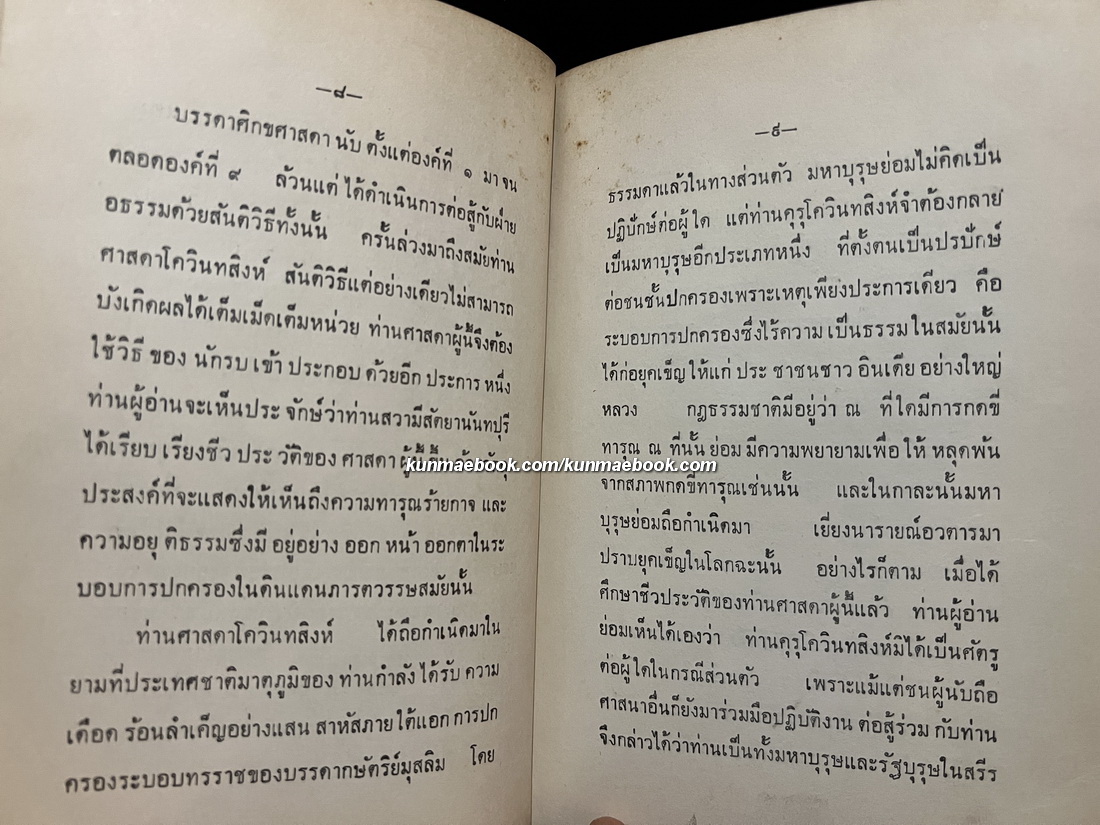 —๘—
บรรดาศิกขศาสดา นับ ตั้งแต่องค์ที่ ๑ มา จน
ตลอดองค์ที่ ๙ ล้วนแต่ ได้ดำเนินการต่อสู้กับฝ่าย
อธรรมด้วยสันติวิธีทั้งนั้น ครั้นล่วงมาถึงสมัยท่าน
ศาสดาโควินทสิงห์ สันติวิธีแต่อย่างเดียวไม่สามารถ
บังเกิดผลได้เต็มเม็ดเต็มหน่วย ท่านศาสดาผู้นี้จึงต้อง
ใช้วิธี ของ นักรบ เข้า ประกอบ ด้วยอีก ประการ หนึ่ง
ท่านผู้อ่านจะเห็นประ จักษ์ว่าท่านสวามีสัตยานันทบุรี
ได้เรียบ เรียงชีว ประ วัติของ ศาสดา ผู้นี้ขึ้น
ประสงค์ที่จะแสดงให้เห็นถึงความทารุณร้ายกาจ และ
ความอยุ ติธรรมซึ่งมี อยู่อย่าง ออก หน้า ออกตาในระ
บอบการปกครองในดินแดนภารตวรรษสมัยนั้น
ท่านศาสดาโควินทสิงห์ ได้ถือกำเนิดมาใน
ยามที่ประเทศชาติมาตุภูมิของ ท่านกำลังได้รับ ความ
เดือด ร้อนลำเค็ญอย่างแสน สาหัสภายใต้แอก การปก
ครองระบอบทรราชของบรรดากษัตริย์มุสลิม โดย
—๙—
ธรรมดาแล้วในทางส่วนตัว มหาบุรุษย่อมไม่คิดเป็น
ปฏิปักษ์ต่อผู้ใด แต่ท่านคุรุโควินทสิงห์จำต้องกลาย
เป็นมหาบุรุษอีกประเภทหนึ่ง ที่ตั้งตนเป็นปรปักษ์
ต่อชนชั้นปกครองเพราะเหตุเพียงประการเดียว คือ
ระบอบการปกครองซึ่งไร้ความ เป็นธรรม ในสมัยนั้น
ได้ก่อยุคเข็ญ ให้แก่ ประ ชาชนชาว อินเดีย อย่างใหญ่
หลวง กฎธรรมชาติมีอยู่ว่า ณ ที่ใดมีการกดขี่
ทารุณ ณ ที่นั้น ย่อม มีความพยายามเพื่อ ให้ หลุดพ้น
kunmaebook.com/kunmaebook.com
จากสภาพกดขี่ทารุณเช่นนั้น และในกาละนั้นมหา
บุรุษย่อมถือกำเนิดมา เยี่ยงนารายณ์อวตารมา
ปราบยุคเข็ญในโลกฉะนั้น อย่างไรก็ตาม เมื่อได้
ศึกษาชีวประวัติของท่านศาสดาผู้นี้แล้ว ท่านผู้อ่าน
ย่อมเห็นได้เองว่า ท่านคุรุโควินทสิงห์มิได้เป็นศัตรู
ต่อผู้ใดในกรณีส่วนตัว เพราะแม้แต่ชนผู้นับถือ
ศาสนาอื่นก็ยังมาร่วมมือปฏิบัติงาน ต่อสู้ร่วม กับท่าน
จึงกล่าวได้ว่าท่านเป็นทั้งมหาบุรุษและรัฐบุรุษในสรีร